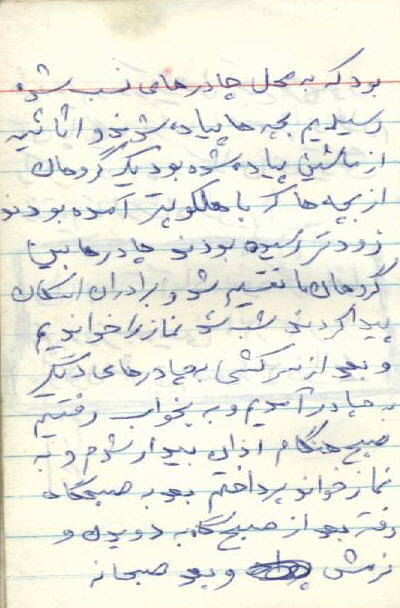 بود که به محل چادرهای نسب شده
رسیدیم بچه ها پیاده شوند و اثاثیه
از ماشین پیاده شده بود یکی گروهان
از بچه ها که با هلکوپتر آمده بودند
زودتر رسیده بودند چادرها بین
گروهان ما تقسیم شد و برادران اسکان
پیدا کردند شب شد نماز را خواندیم
و بعد از سرکشی به چادرهای دیگر
به چادر آمدیم و به خواب رفتیم
صبح هنگام اذان بیدار شدم و به
نماز خواند پرداختم بعد به صبحگاه
رفته بعد از صبح گاه به دویدن و
نرمش و بعد صبحانه